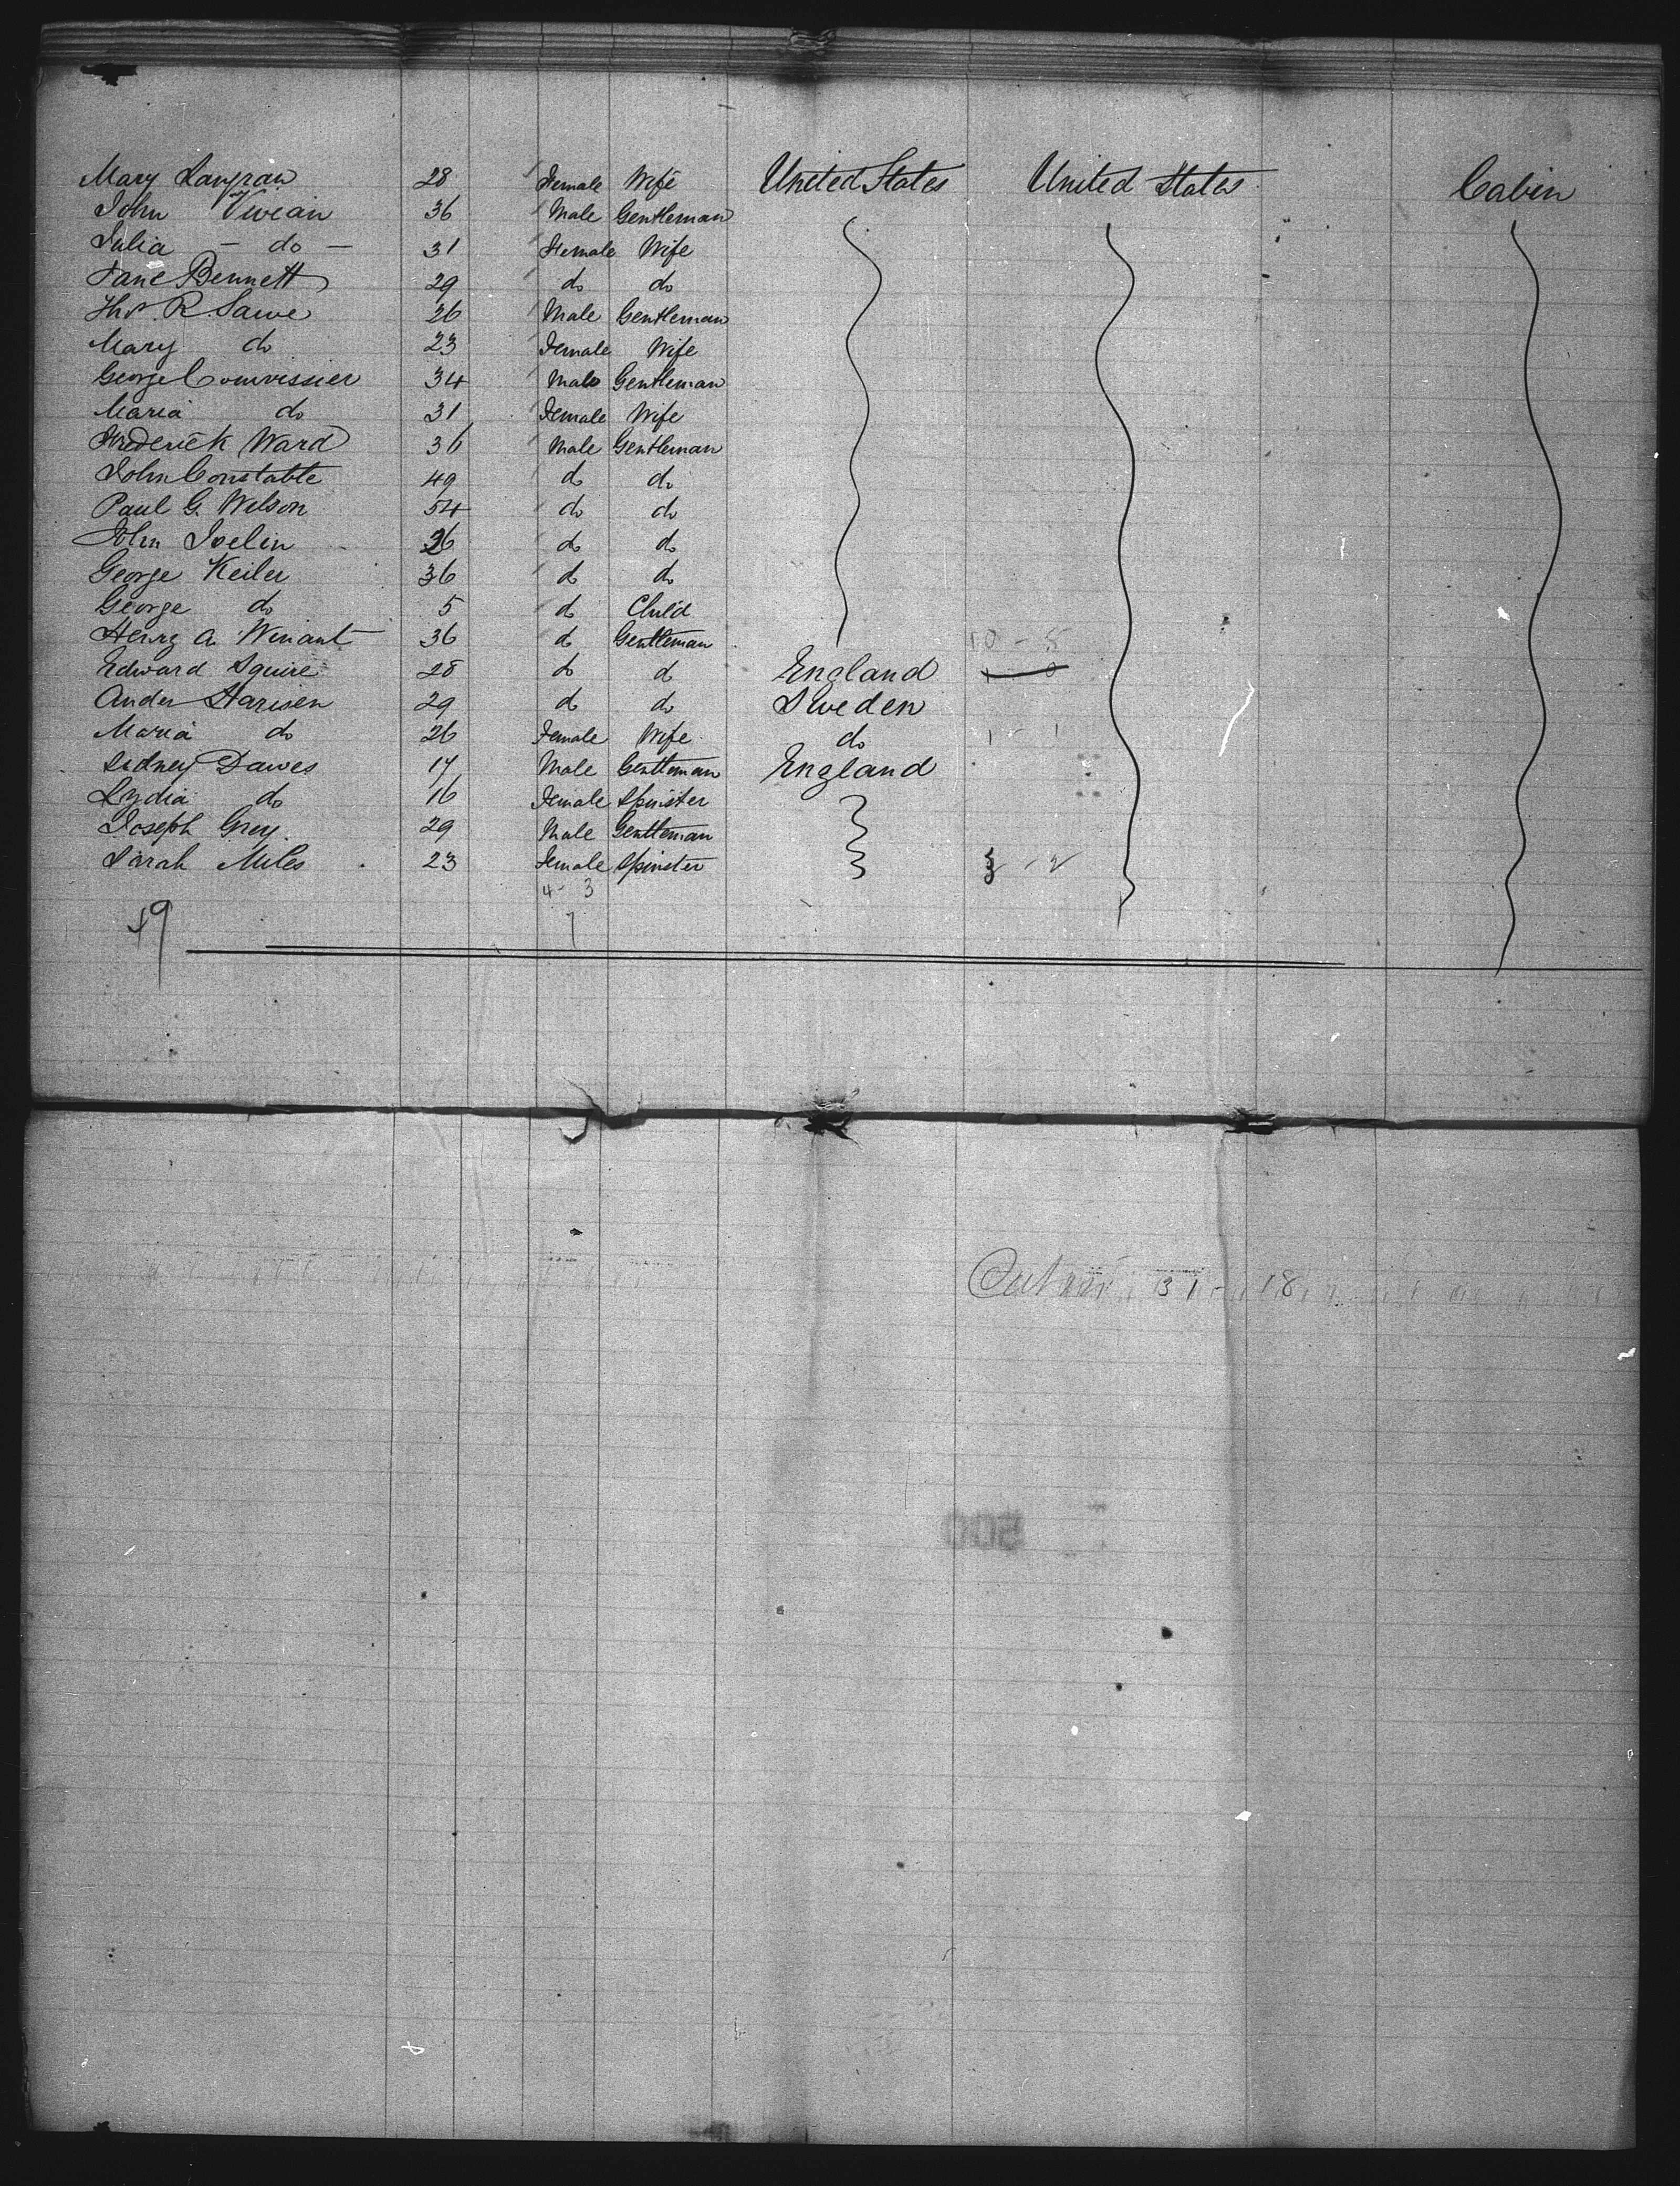 Mary Langran 28 Female Wife United States United States Cabin
John Vivian 36 Male Gentleman
Julia - do - 31 Female Wife
Jane Bennett 29 do do
Thos. R. Sawe 26 Male Gentleman
Mary do 23 Female Wife
George Courvissier 34 Male Gentleman
Maria do 31 Female Wife
Frederick Ward 36 Male Gentleman
John Constable 49 do do
Paul G. Wilson 54 do do
John Joelin 26 do do
George Keiler 36 do do
George do 5 do Child
Henry A Winant 36 do Gentleman 10 - 5
Edward Squire 28 do do England
Ander Harisen 29 do do Sweden
Maria do 26 Female Wife do 1 - 1
Sidney Dawes 17 Male Gentleman England
Lydia do 16 Female Spinster
Joseph Grey. 29 Male Gentleman
Sarah Miles 23 Female Spinster 3 - 2
4 - 3
7
31 - 18